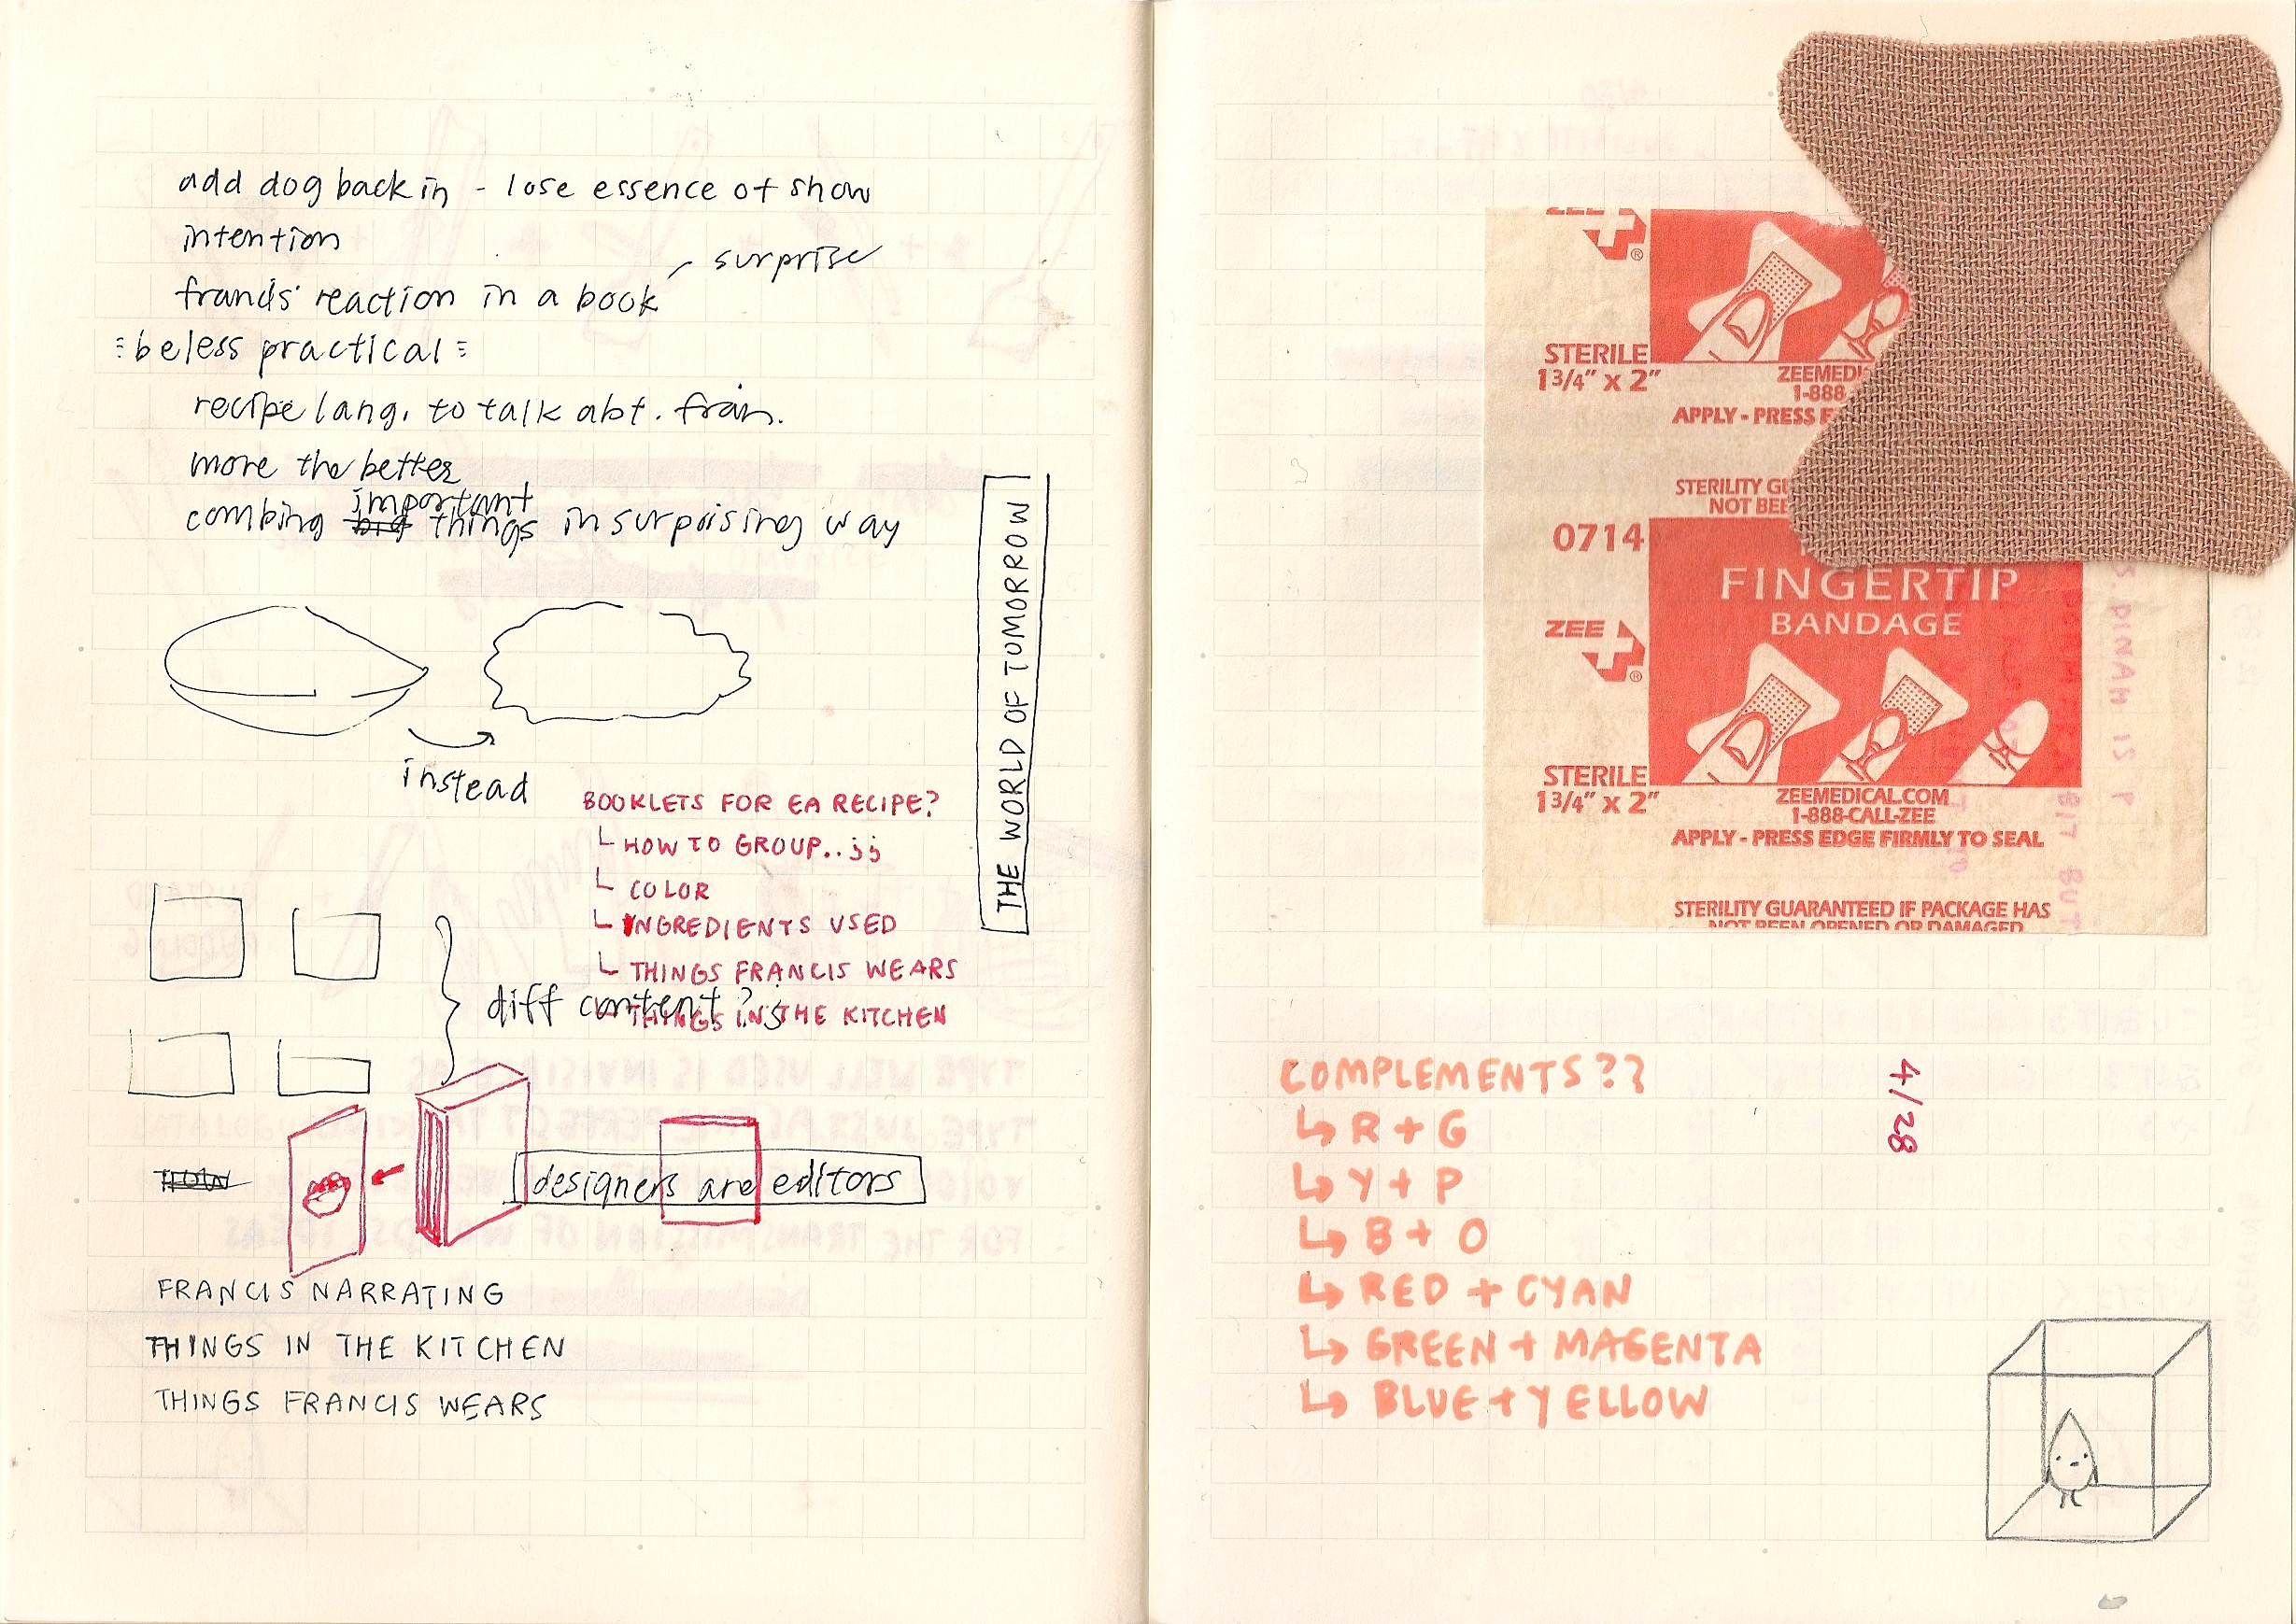 add dog back in - lose essence of show
intention
surprise
francis' reaction in a book
be less practical
recipe lang. to talk abt. fran.
more the better
important
combing big things in surprising way
instead
THE WORLD OF TOMORROW
BOOKLETS FOR EA RECIPE?
HOW TO GROUP..
COLOR
INGREDIENTS USED
THINGS FRANCIS WEARS
THINGS IN THE KITCHEN
diff content?
designers are editors
FRANCIS NARRATING
THINGS IN THE KITCHEN
THINGS FRANCIS WEARS
ZEE
STERILE
1 3/4" X 2"
ZEEMEDI
1-888
APPLY - PRESS E
STERILITY GU
NOT BEE
0714
FINGERTIP
BANDAGE
ZEE
STERILE
1 3/4" X 2"
ZEEMEDICAL.COM
1-888-CALL-ZEE
APPLY - PRESS EDGE FIRMLY TO SEAL
STERILITY GUARANTEED IF PACKAGE HAS
NOT BEEN OPENED OR DAMAGED
COMPLEMENTS??
R + G
Y + P
B + O
RED + CYAN
GREEN + MAGENTA
BLUE + YELLOW
4/28